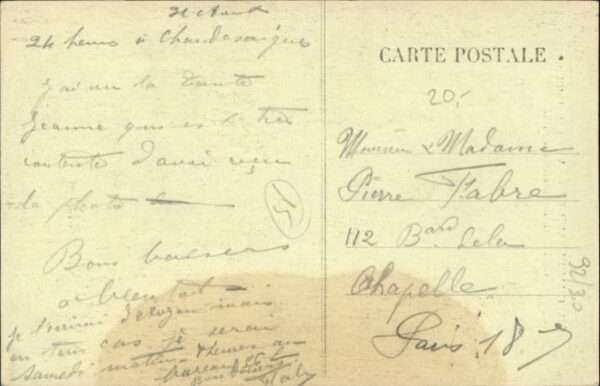 24 heures à Chaudesaigues
j'ai vu la Tante
Jeanne qui est très
contente d'avoir reçu
la photo
Bons baisers
a bientot
je t'écrirai mais
en tous cas je serai
samedi matin heures au
bureau
CARTE POSTALE.
20,-
Monsieur & Madame
Pierre Fabre
112 Bard de la
Chapelle
Paris 18
92/30